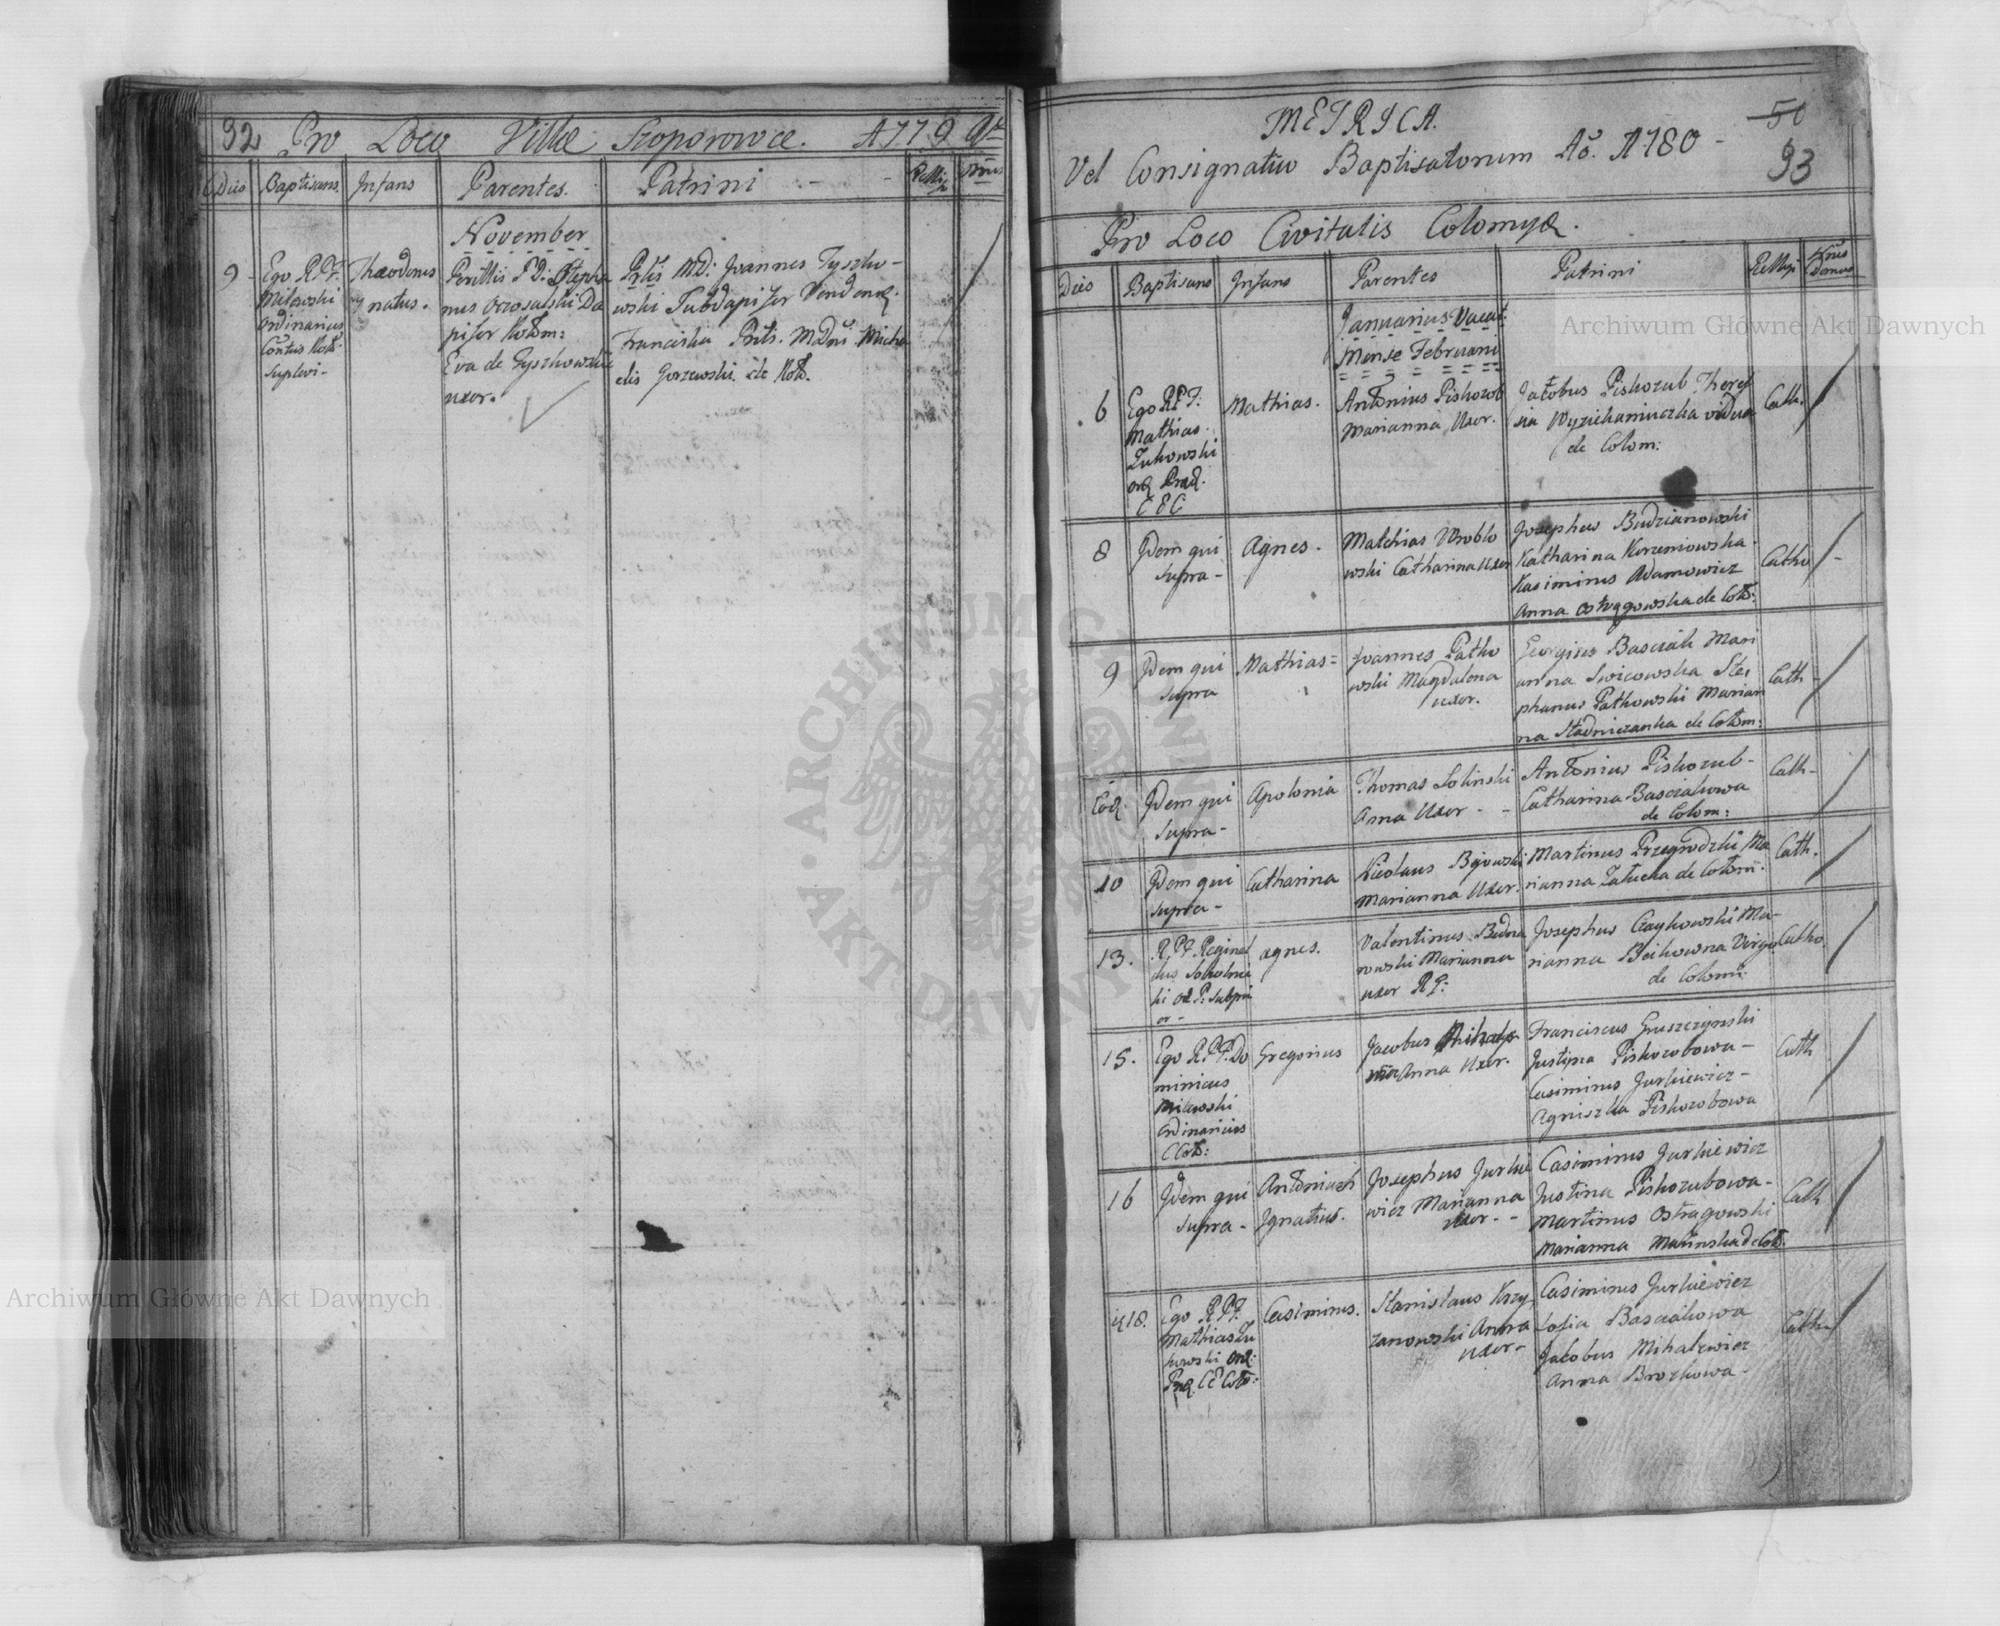 92 Pro Loco Villæ Szoporowce. A 1779
Dies Baptisans. Infans Parentes. Patrini Relligi
November
9 Ego R.P.F. Milewski Ordinarius Con̄tus Kołō. suplevi-
Theodorus natus.
P.D: Stepha
nus
Da
pifer Kołom:
Eva de Tyszkowskie
uxor.
M.D: Joannes Tyszko-
wski Subdapifer Venden.
Franciska M.D. Micha
elis Gorzewski de Koło.
METRICA.
Vel Consignatio Baptisatorum Aō. 1780 -
50
93
Pro Loco Civitatis Colomyæ.
Dies Baptisans Infans Parentes Patrini Relligi Nrus Domus
Januarius Vacat
Mense Februarii
6 Ego R.P.F. Mathias Zukowski C E C
Mathias.
Antonius Piskozub
Marianna Uxor.
Jacobus Piskozub There
sia vidua
de Colom:
Cath.
8 Idem qui supra -
Agnes.
Mathias Wroblo
wski Catharina Uxor
Josephus Budzianowski
Katharina Korzeniowska
Kasimirus Adamowicz
Anna Ostrągowska de Coło:
Catho
9 Idem qui supra
Mathias =
Joannes Patko
wski Magdalena
uxor.
Georgius Basciak Mari
anna Swicowska Ste
phanus Patkowski Marian
na Stadniczanka de Colom:
Cath -
Eod. Idem qui supra -
Apolonia
Thomas Solinski
Anna Uxor -
Antonius Piskozub -
Catharina Basciakowa
de Colom:
Cath -
10 Idem qui supra -
Catharina
Nicolaus
Marianna Uxor.
Martinus Przegrodzki Ma
rianna Załucka de Colom:
Cath.
13. R.P.F. Reginal
dus
Agnes.
Valentinus Bedna
rowski Marianna
uxor
Josephus Czaykowski Ma-
rianna Virgo
de Colom:
Catho
15. Ego R.P.F. Do
minicus
Milewski
ordinarius
C Coło:
Gregorius
Jacobus
Anna Uxor.
Franciscus Gruszczynski
Justina Piskozobowa -
Casimirus Jurkiewicz -
Agniszka Piskozobowa
Cath
16 Idem qui supra -
Antonius
Ignatius.
Josephus Jurkie
wicz Marianna
uxor -
Casimirus Jurkiewicz
Justina Piskozubowa -
Martinus Ostragowski
Marianna de Coło.
Cath
18. Ego R.P.F.
Mathias Zu
kowski
C E Coło:
Casimirus.
Stanislaus Krzy
zanowski Anna
uxor -
Casimirus Jurkiewicz
Zofia Basciakowa
Jacobus Mihalewicz
Anna Brozkowa -
Cath
Archiwum Główne Akt Dawnych
Archiwum Główne Akt Dawnych